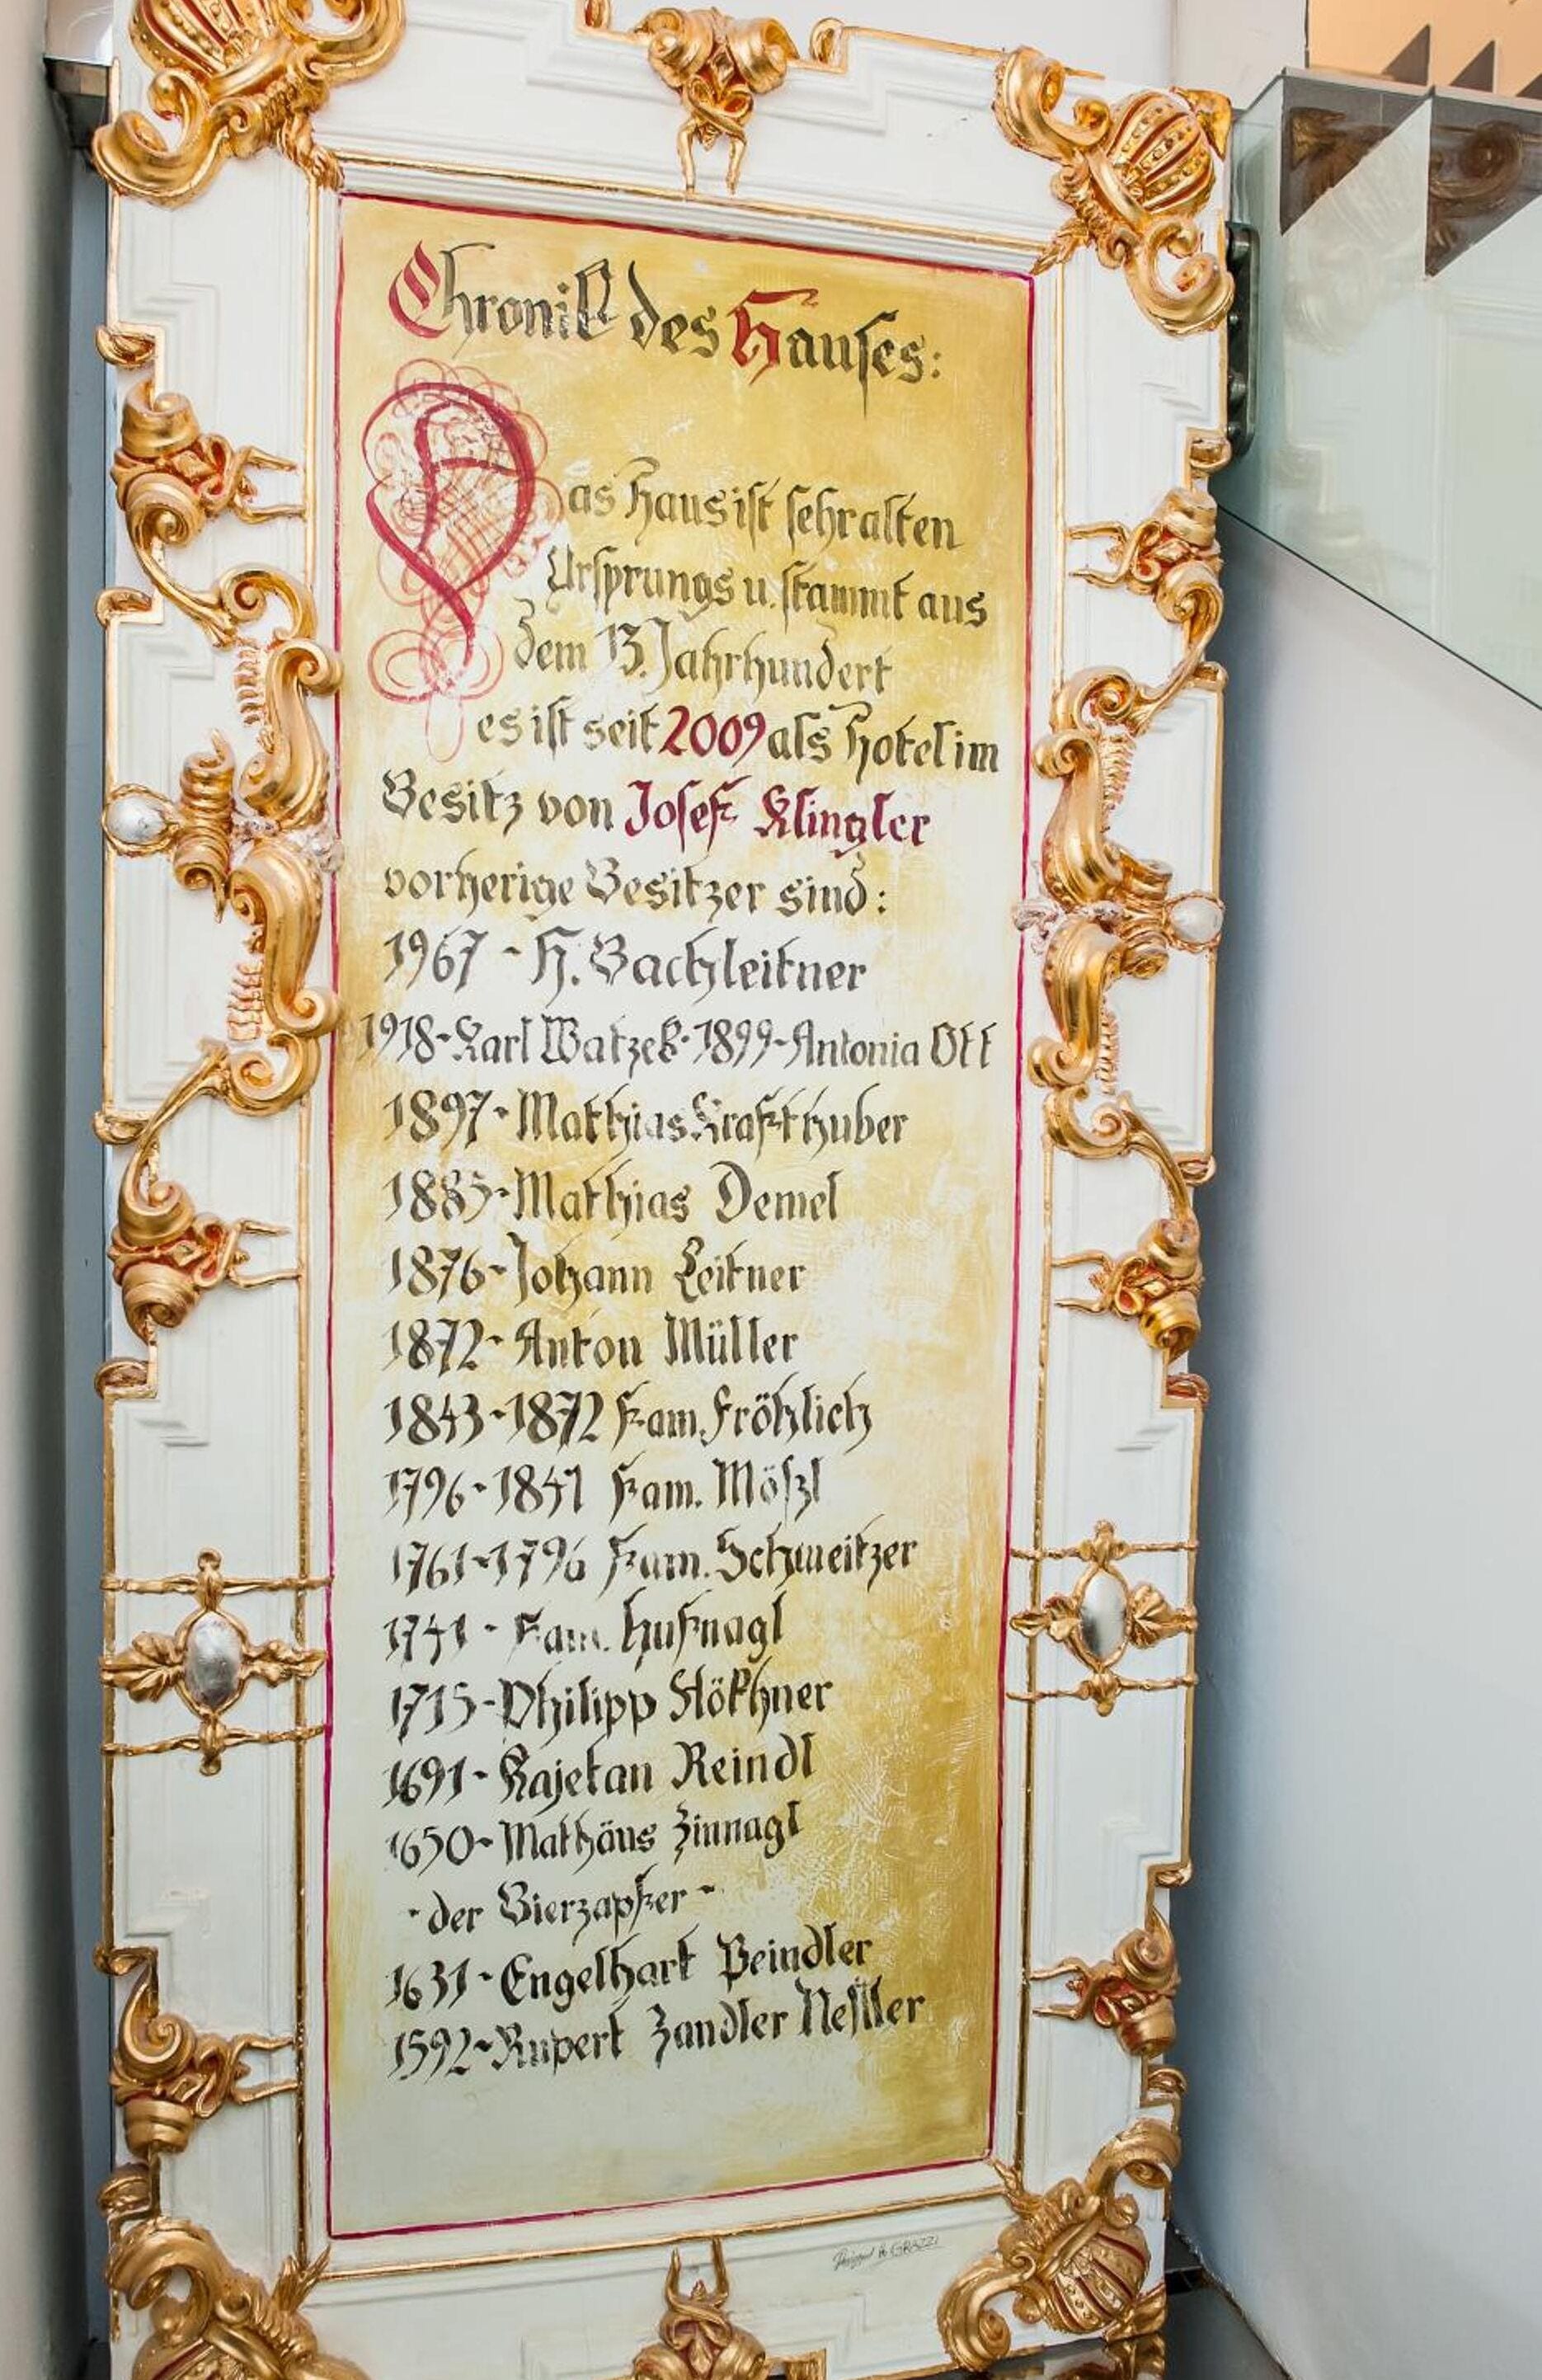 Chronik des Hauses:
Das Haus ist sehr alten
Ursprungs u. stammt aus
dem 13. Jahrhundert
es ist seit 2009 als Hotel im
Besitz von Josef Klingler
vorherige Besitzer sind:
1967 - H. Bachleitner
1918-Karl Watzek-1899-Antonia Ott
1897-Matthias Krafthuber
1885-Mathias Demel
1876-Johann Leitner
1872-Anton Müller
1843-1872 Fam. Fröhlich
1796-1841 Fam. Möszl
1761-1796 Fam. Schweitzer
1741 - Fam. Hufnagl
1715-Philipp Stökhner
1691-Kajetan Reindl
1650-Mathäus Zinnagl
-der Bierzapfer-
1631-Engelhart Peindler
1592-Rupert Zandler Nestler
GRAZZI